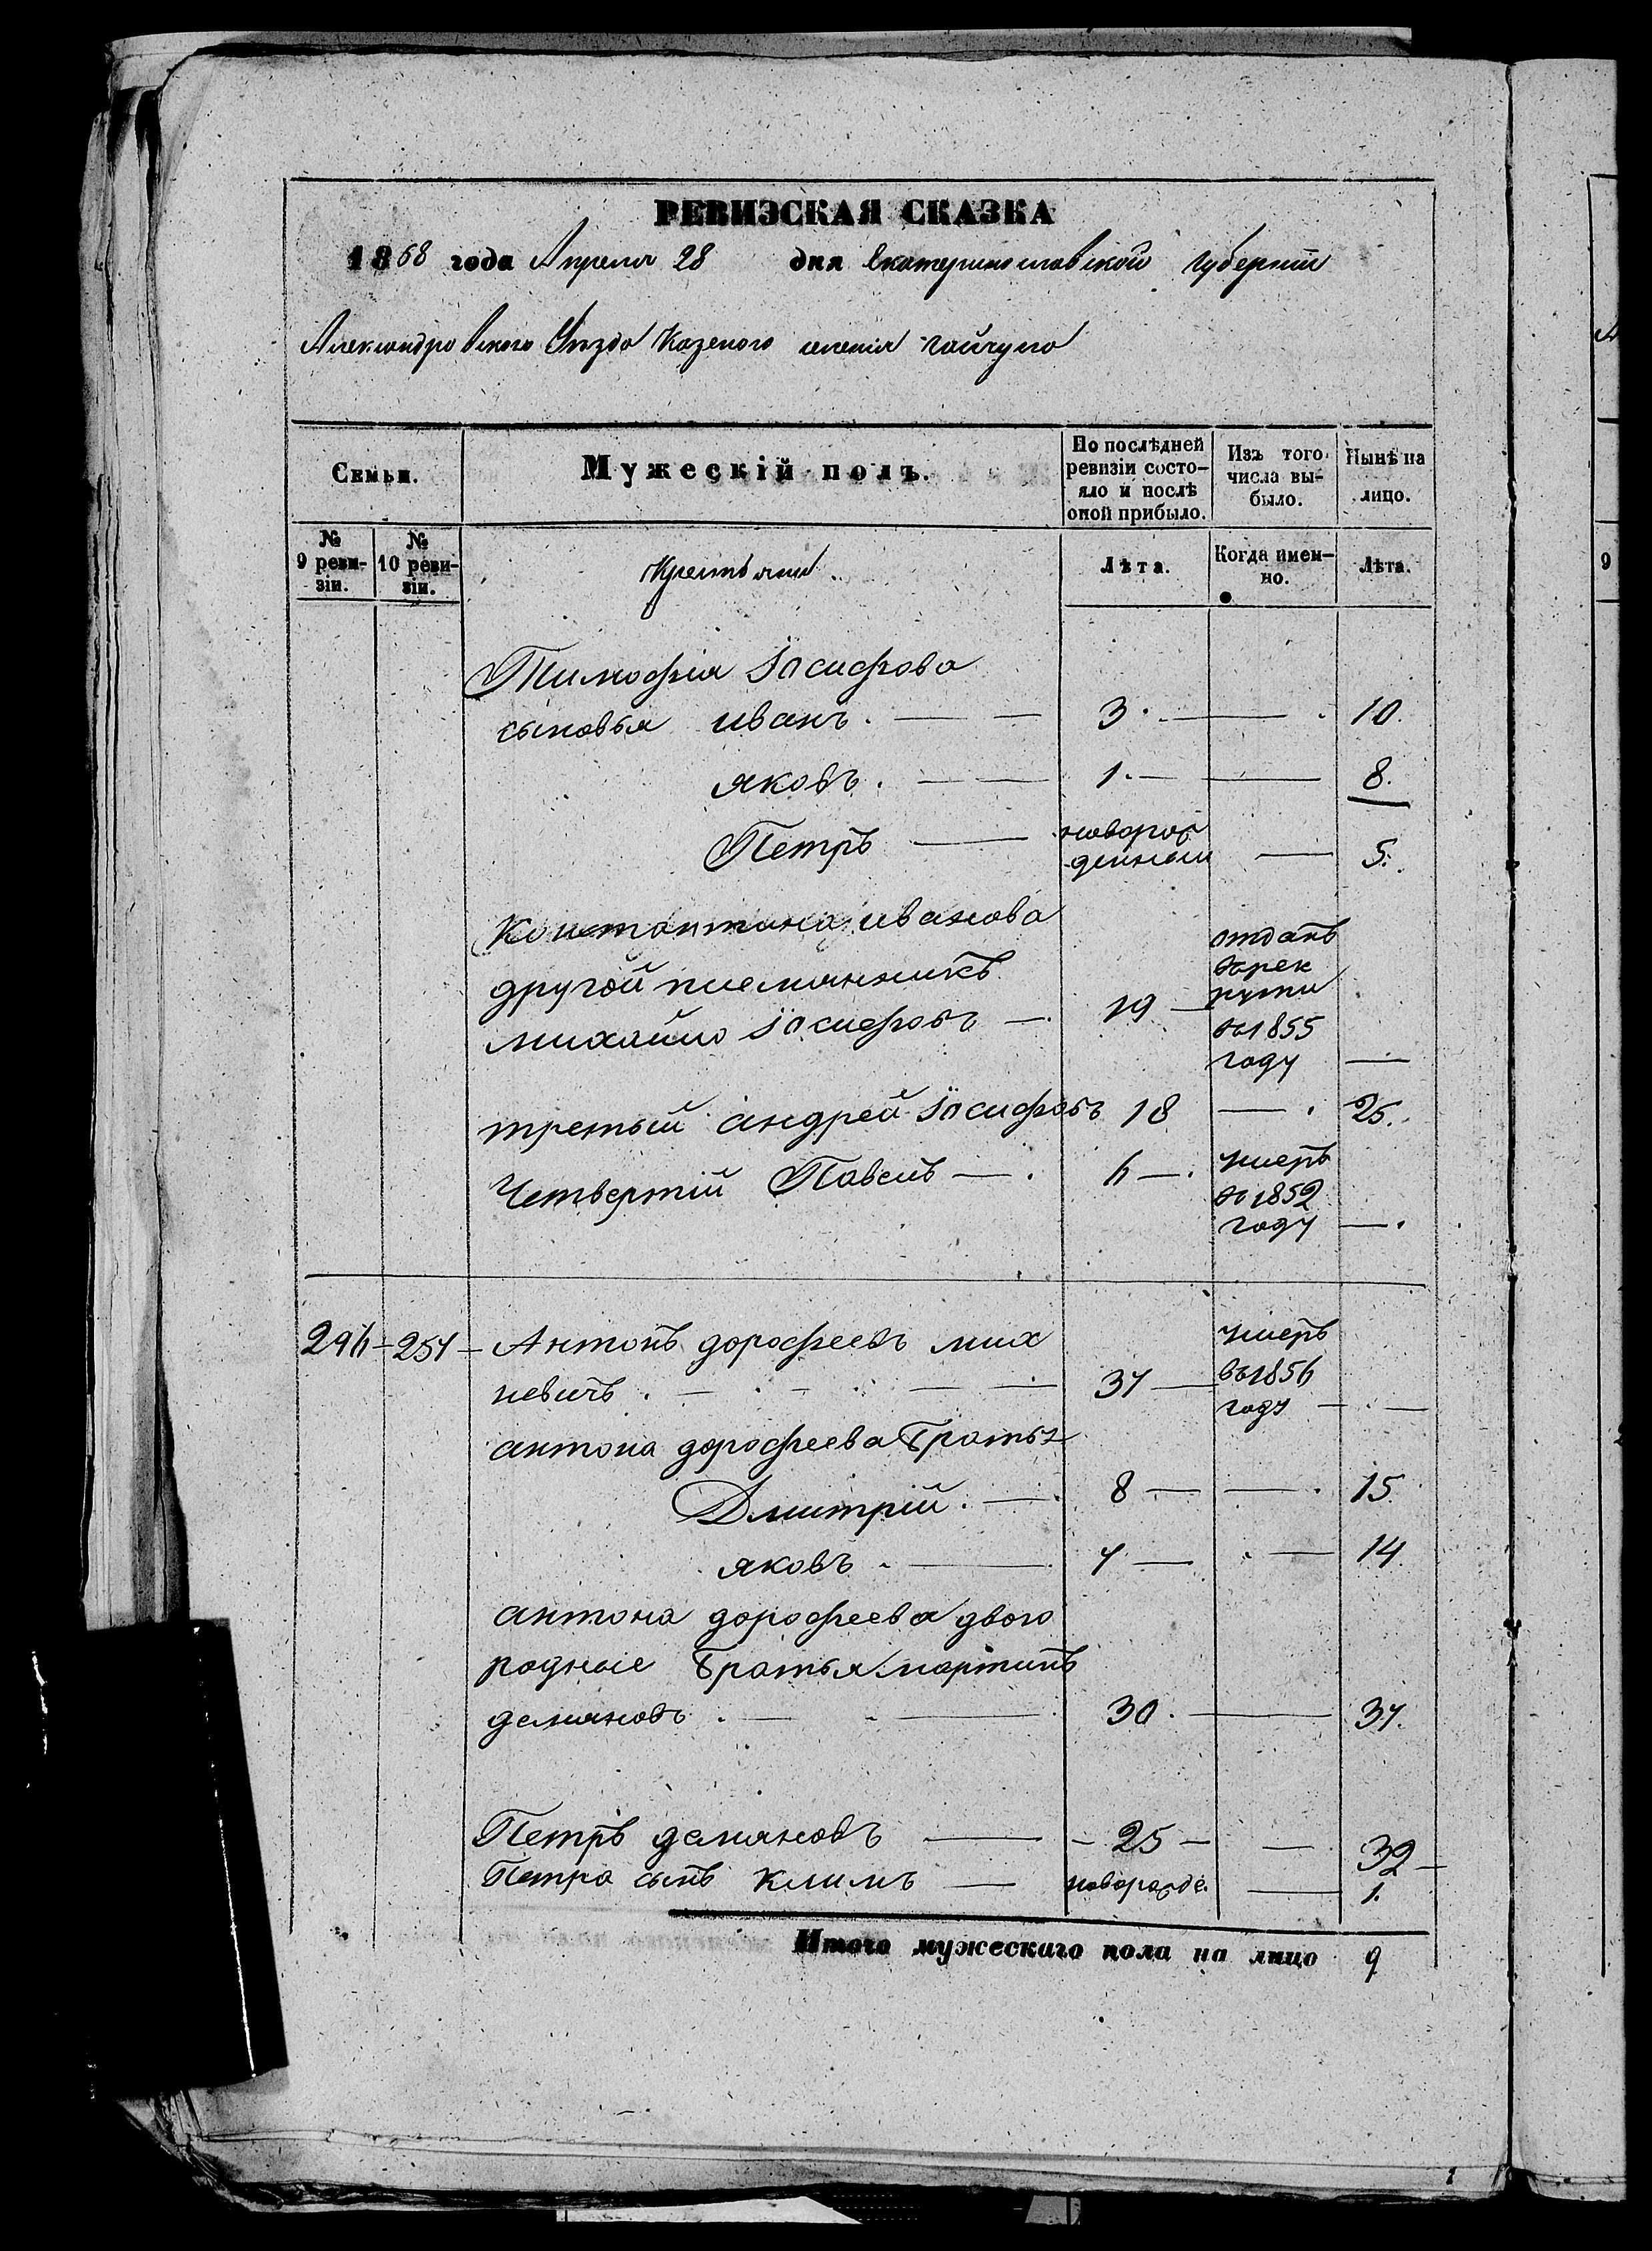 РЕВИЗСКАЯ СКАЗКА
1858 года Апреля 28 дня Екатеринославской губерніи
Александровского Уѣзда Казеного селенія гайчула
Семьи.
Мужескій полъ.
По послѣдней ревизіи состо-
яло и послѣ оной прибыло.
Изъ того числа вы-
было.
Нынѣ на лицо.
№ 9 реви-
зіи.
№ 10 реви-
зіи.
Крестьяне
Лѣта.
Когда имен-
но.
Лѣта.
Тимофея Іосифова
сыновья иванъ. — — 3. — — 10.
яковъ. — — 1. — — 8.
Петръ — новорож
денный — 5.
Константина иванова
другой племянникъ
михайло Іосифовъ — 19 —
отданъ
врек
руты
в1855
году —
третый андрей Іосифовъ 18 — 25.
Четвертій Павелъ — 6 —
умеръ
в1852
году —
246 — 257 — Антонъ дорофеевъ мих
невичъ. — — — 37 —
умеръ
въ1856
году —
антона дорофеева братья
Дмитрій. — 8 — — 15.
яковъ. — 7 — — 14.
антона дорофеева двою
родные братья мартинъ
демяновъ. — — 30. — 37.
Петръ демяновъ — 25 — — 32 —
Петра сынъ климъ — новорожде. — 1.
Итого мужескаго пола на лицо 9